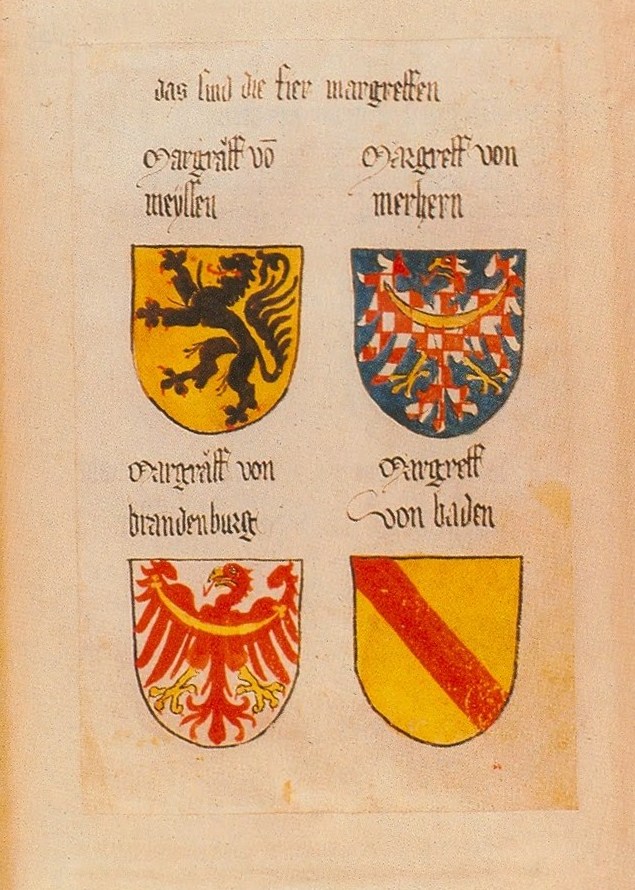 das sind die fier margreffen
Margräff vō
meyssen
Margreff von
merhern
Margräff von
brandenburg
Margreff
von baden